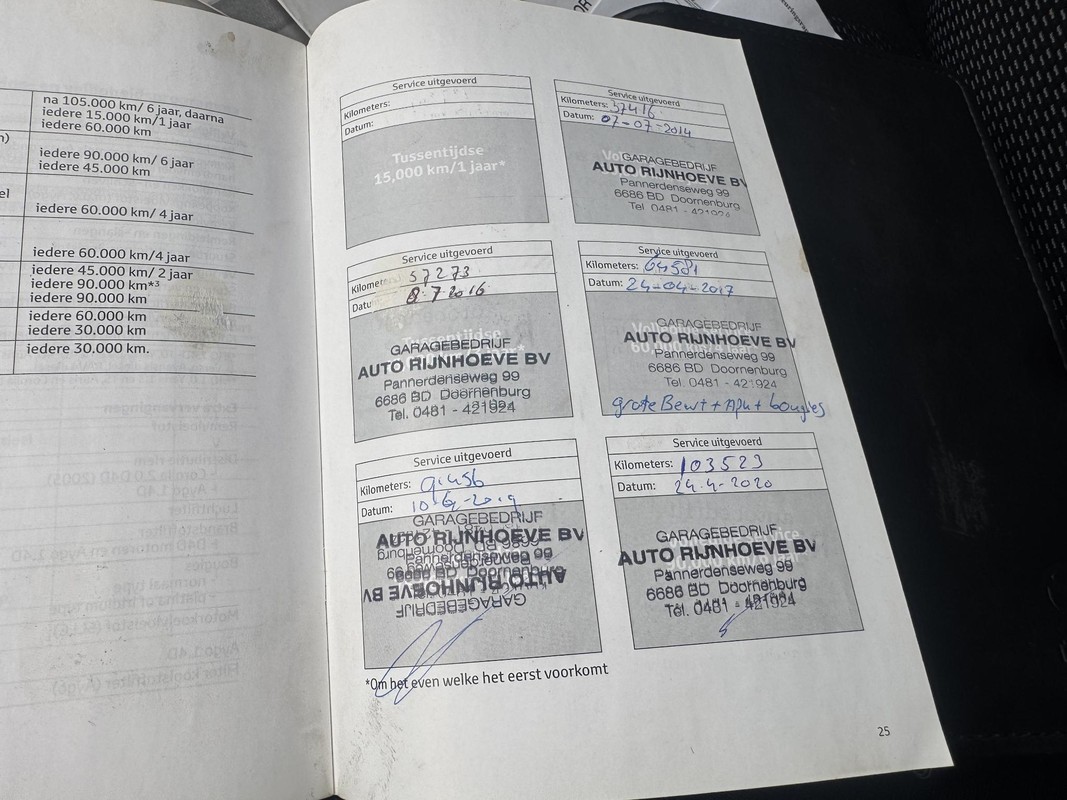 na 105.000 km/ 6 jaar, daarna
iedere 15.000 km/1 jaar
iedere 60.000 km
iedere 90.000 km/ 6 jaar
iedere 45.000 km
iedere 60.000 km/ 4 jaar
iedere 60.000 km/4 jaar
iedere 45.000 km/ 2 jaar
iedere 90.000 km*³
iedere 90.000 km
iedere 60.000 km
iedere 30.000 km
iedere 30.000 km.
Service uitgevoerd
Kilometers:
Datum:
Tussentijdse
15,000 km/1 jaar*
Service uitgevoerd
Kilometers: 37416
Datum: 07-07-2014
GARAGEBEDRIJF
AUTO RIJNHOEVE BV
Pannerdenseweg 99
6686 BD Doornenburg
Tel. 0481 - 421924
Service uitgevoerd
57273
8.7 2016
GARAGEBEDRIJF
AUTO RIJNHOEVE BV
Pannerdenseweg 99
6686 BD Doornenburg
Tel. 0481 - 421924
Service uitgevoerd
Kilometers: 64581
Datum: 24-04-2017
GARAGEBEDRIJF
AUTO RIJNHOEVE BV
Pannerdenseweg 99
6686 BD Doornenburg
Tel. 0481 - 421924
grote Beurt + Apk + bougies
Service uitgevoerd
Kilometers: 91456
Datum: 10-6-2019
GARAGEBEDRIJF
AUTO RIJNHOEVE BV
Pannerdenseweg 99
AUTO RIJNHOEVE BV
GARAGEBEDRIJF
Service uitgevoerd
Kilometers: 103523
Datum: 24-4-2020
GARAGEBEDRIJF
AUTO RIJNHOEVE BV
Pannerdenseweg 99
6686 BD Doornenburg
Tel. 0481 - 421924
*Om het even welke het eerst voorkomt
25